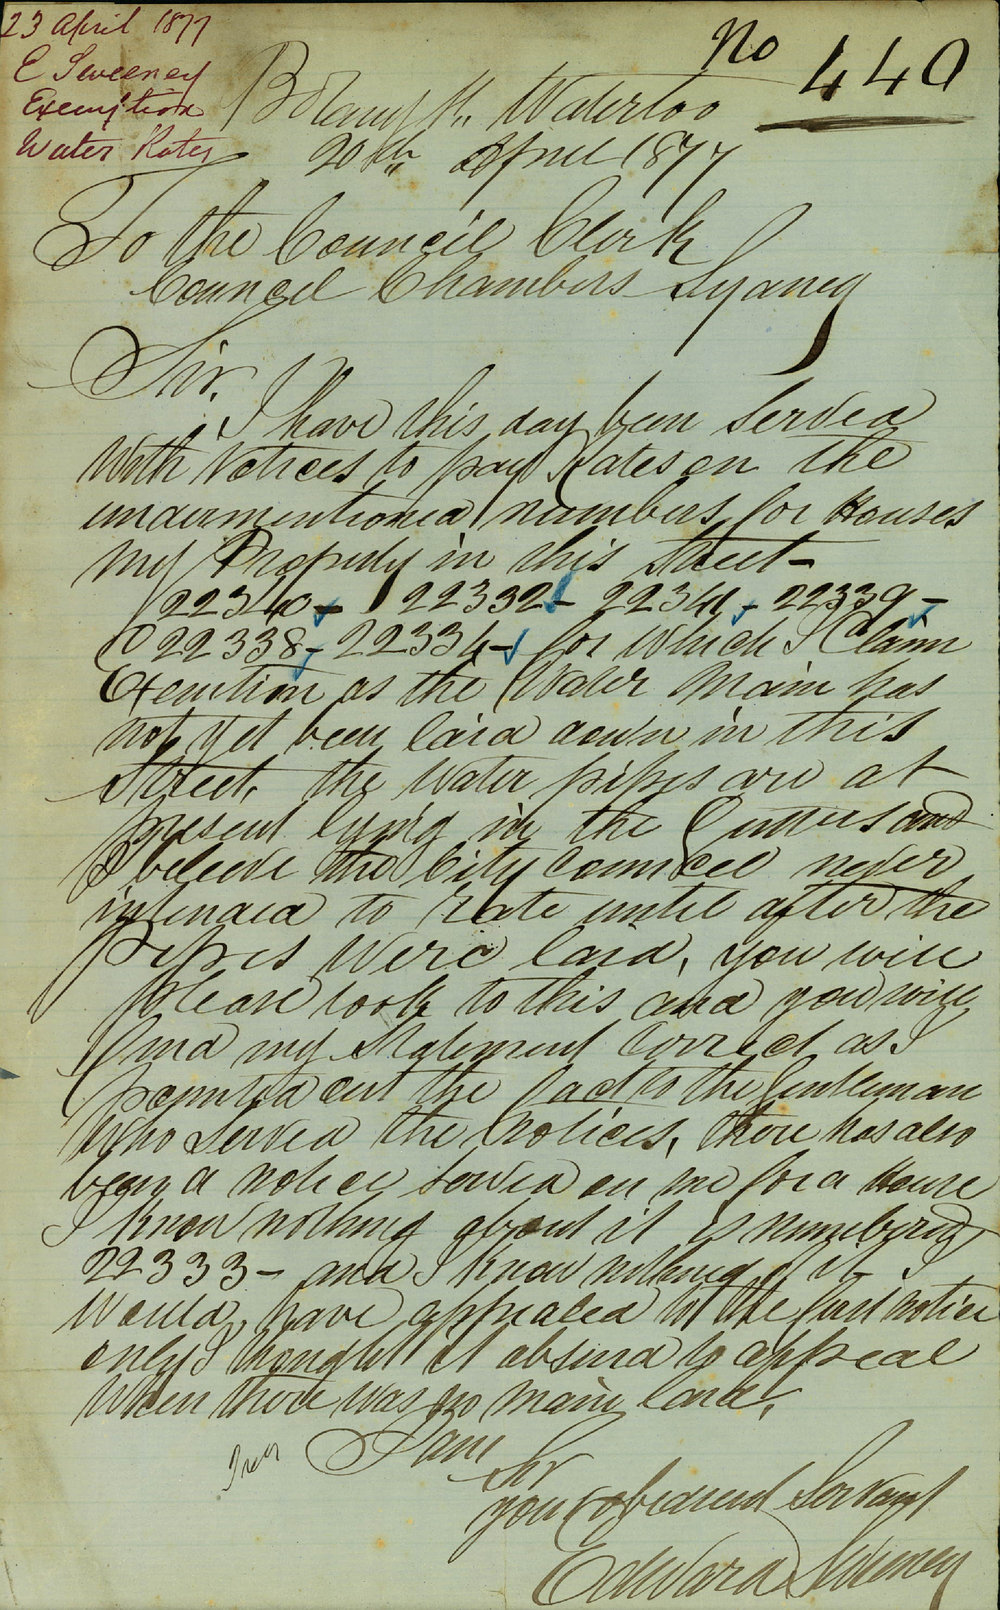 23 April 1877
E Sweeney
Exemption
Water Rates
No 440
Botany St. Waterloo
20th April 1877
To the Council Clerk
Council Chambers Sydney
Sir.
I have this day been Served
With Notices to pay Rates on the
undermentioned numbers for Houses
my Property in this Street -
22340 - 22332 - 22341 - 22339 -
22338 - 22334 - for which I Claim
Exemtion as the Water Main has
not yet been laid down in this
Street, the Water pipes are at
present lying in the Gutters and
I beleive the City Council never
intended to Rate until after the
Pipes were laid, you will
please look to this and you will
find my Statement Correct as I
pointed out the fact to the Gentleman
Who Served the Notices, there has also
been a notice served on me for a House
I know nothing about it is numbered
22333 - and I know nothing of it I
Would have appealed to the first notice
only I thought it absurd to appeal
When there was no main laid,
I am
Sir
your obedient Servant
Edward Sweeney